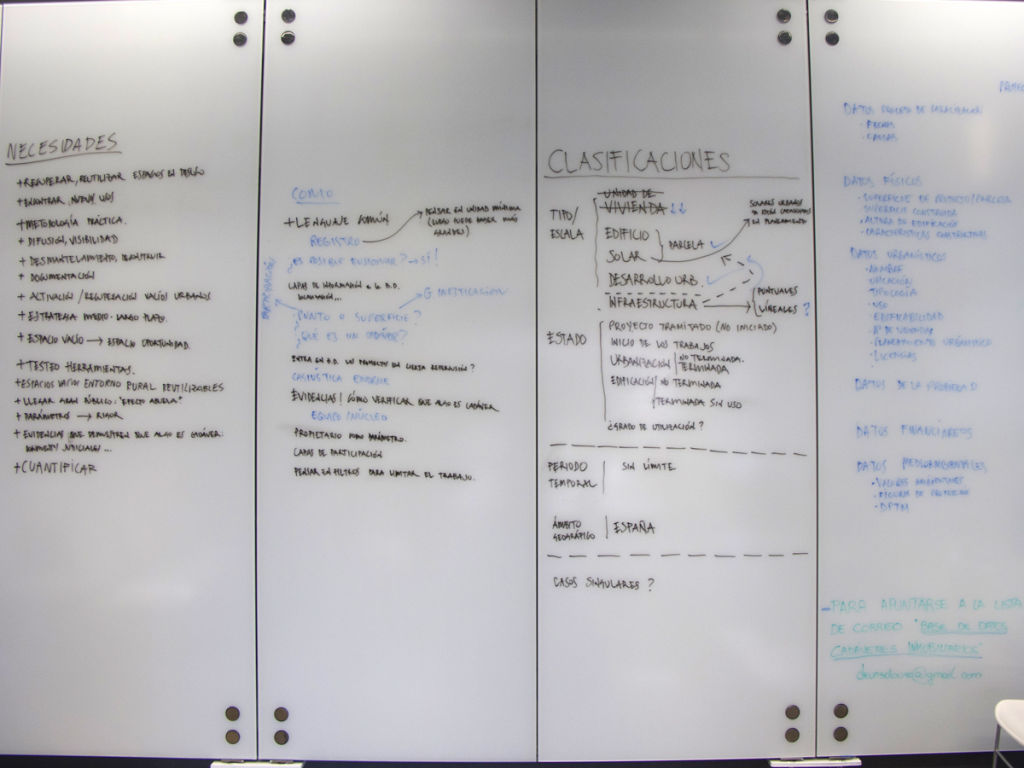 NECESIDADES
+ RECUPERAR, REUTILIZAR ESPACIOS EN DESUSO
+ ENCONTRAR NUEVOS USOS
+ METODOLOGÍA PRÁCTICA.
+ DIFUSIÓN, VISIBILIDAD
+ DESMANTELAMIENTO, DECONSTRUIR
+ DOCUMENTACIÓN
+ ACTIVACIÓN / RECUPERACIÓN VACÍOS URBANOS
+ ESTRATEGIA MEDIO-LARGO PLAZO.
+ ESPACIO VACÍO → ESPACIO OPORTUNIDAD.
+ TESTEO HERRAMIENTAS.
+ ESPACIOS VACÍOS ENTORNO RURAL REUTILIZABLES
+ LLEGAR GRAN PÚBLICO: "EFECTO ABUELA"
+ PARÁMETROS → RIGOR
+ EVIDENCIAS QUE DEMUESTREN QUE ALGO ES CADÁVER:
+ CUANTIFICAR
COMO
+ LENGUAJE COMÚN
PENSAR EN UNIDAD MÍNIMA
(LUEGO PUEDE HABER MÁS
GRANDES)
REGISTRO
¿ES POSIBLE EVOLUCIONAR? → SÍ!
PARTICIPACIÓN
CAPAS DE INFORMACIÓN a la B.D.
¿PUNTO O SUPERFICIE?
¿QUÉ ES UN CADÁVER?
ENTRA EN B.D. UN PROYECTO SIN CIERTA REPERCUSIÓN?
CASUÍSTICA ENORME
EVIDENCIAS! CÓMO VERIFICAR QUE ALGO ES CADÁVER
EQUIPO/NÚCLEO
PROPIETARIO COMO PARÁMETRO.
CAPAS DE PARTICIPACIÓN
PENSAR EN FILTROS PARA LIMITAR EL TRABAJO.
CLASIFICACIONES
TIPO/
ESCALA
UNIDAD DE
VIVIENDA
EDIFICIO
SOLAR
PARCELA
SOLARES URBANOS
EN PLANEAMIENTO
DESARROLLO URB.
INFRAESTRUCTURA
PUNTUALES
LINEALES?
ESTADO
PROYECTO TRAMITADO (NO INICIADO)
INICIO DE LOS TRABAJOS
URBANIZACIÓN
NO TERMINADA.
TERMINADA
EDIFICACIÓN
NO TERMINADA
TERMINADA SIN USO
¿GRADO DE UTILIZACIÓN?
PERIODO
TEMPORAL
SIN LÍMITE
ÁMBITO
GEOGRÁFICO
ESPAÑA
CASOS SINGULARES?
DATOS PROCESO DE PARALIZACIÓN
- FECHAS
- CAUSAS
DATOS FÍSICOS
- SUPERFICIE DE PROYECTO/PARCELA
- SUPERFICIE CONSTRUIDA
- ALTURA DE EDIFICACIÓN
- CARACTERÍSTICAS CONSTRUCTIVAS
DATOS URBANÍSTICOS
- NOMBRE
- UBICACIÓN
- TIPOLOGÍA
- USO
- EDIFICABILIDAD
- Nº DE VIVIENDAS
- PLANEAMIENTO URBANÍSTICO
- LICENCIAS
DATOS DE LA PROPIEDAD
DATOS FINANCIEROS
DATOS MEDIOAMBIENTALES
- VALORES AMBIENTALES
- FIGURA DE PROTECCIÓN
- DPTM
- PARA APUNTARSE A LA LISTA
DE CORREO "BASE DE DATOS
CADÁVERES INMOBILIARIOS"